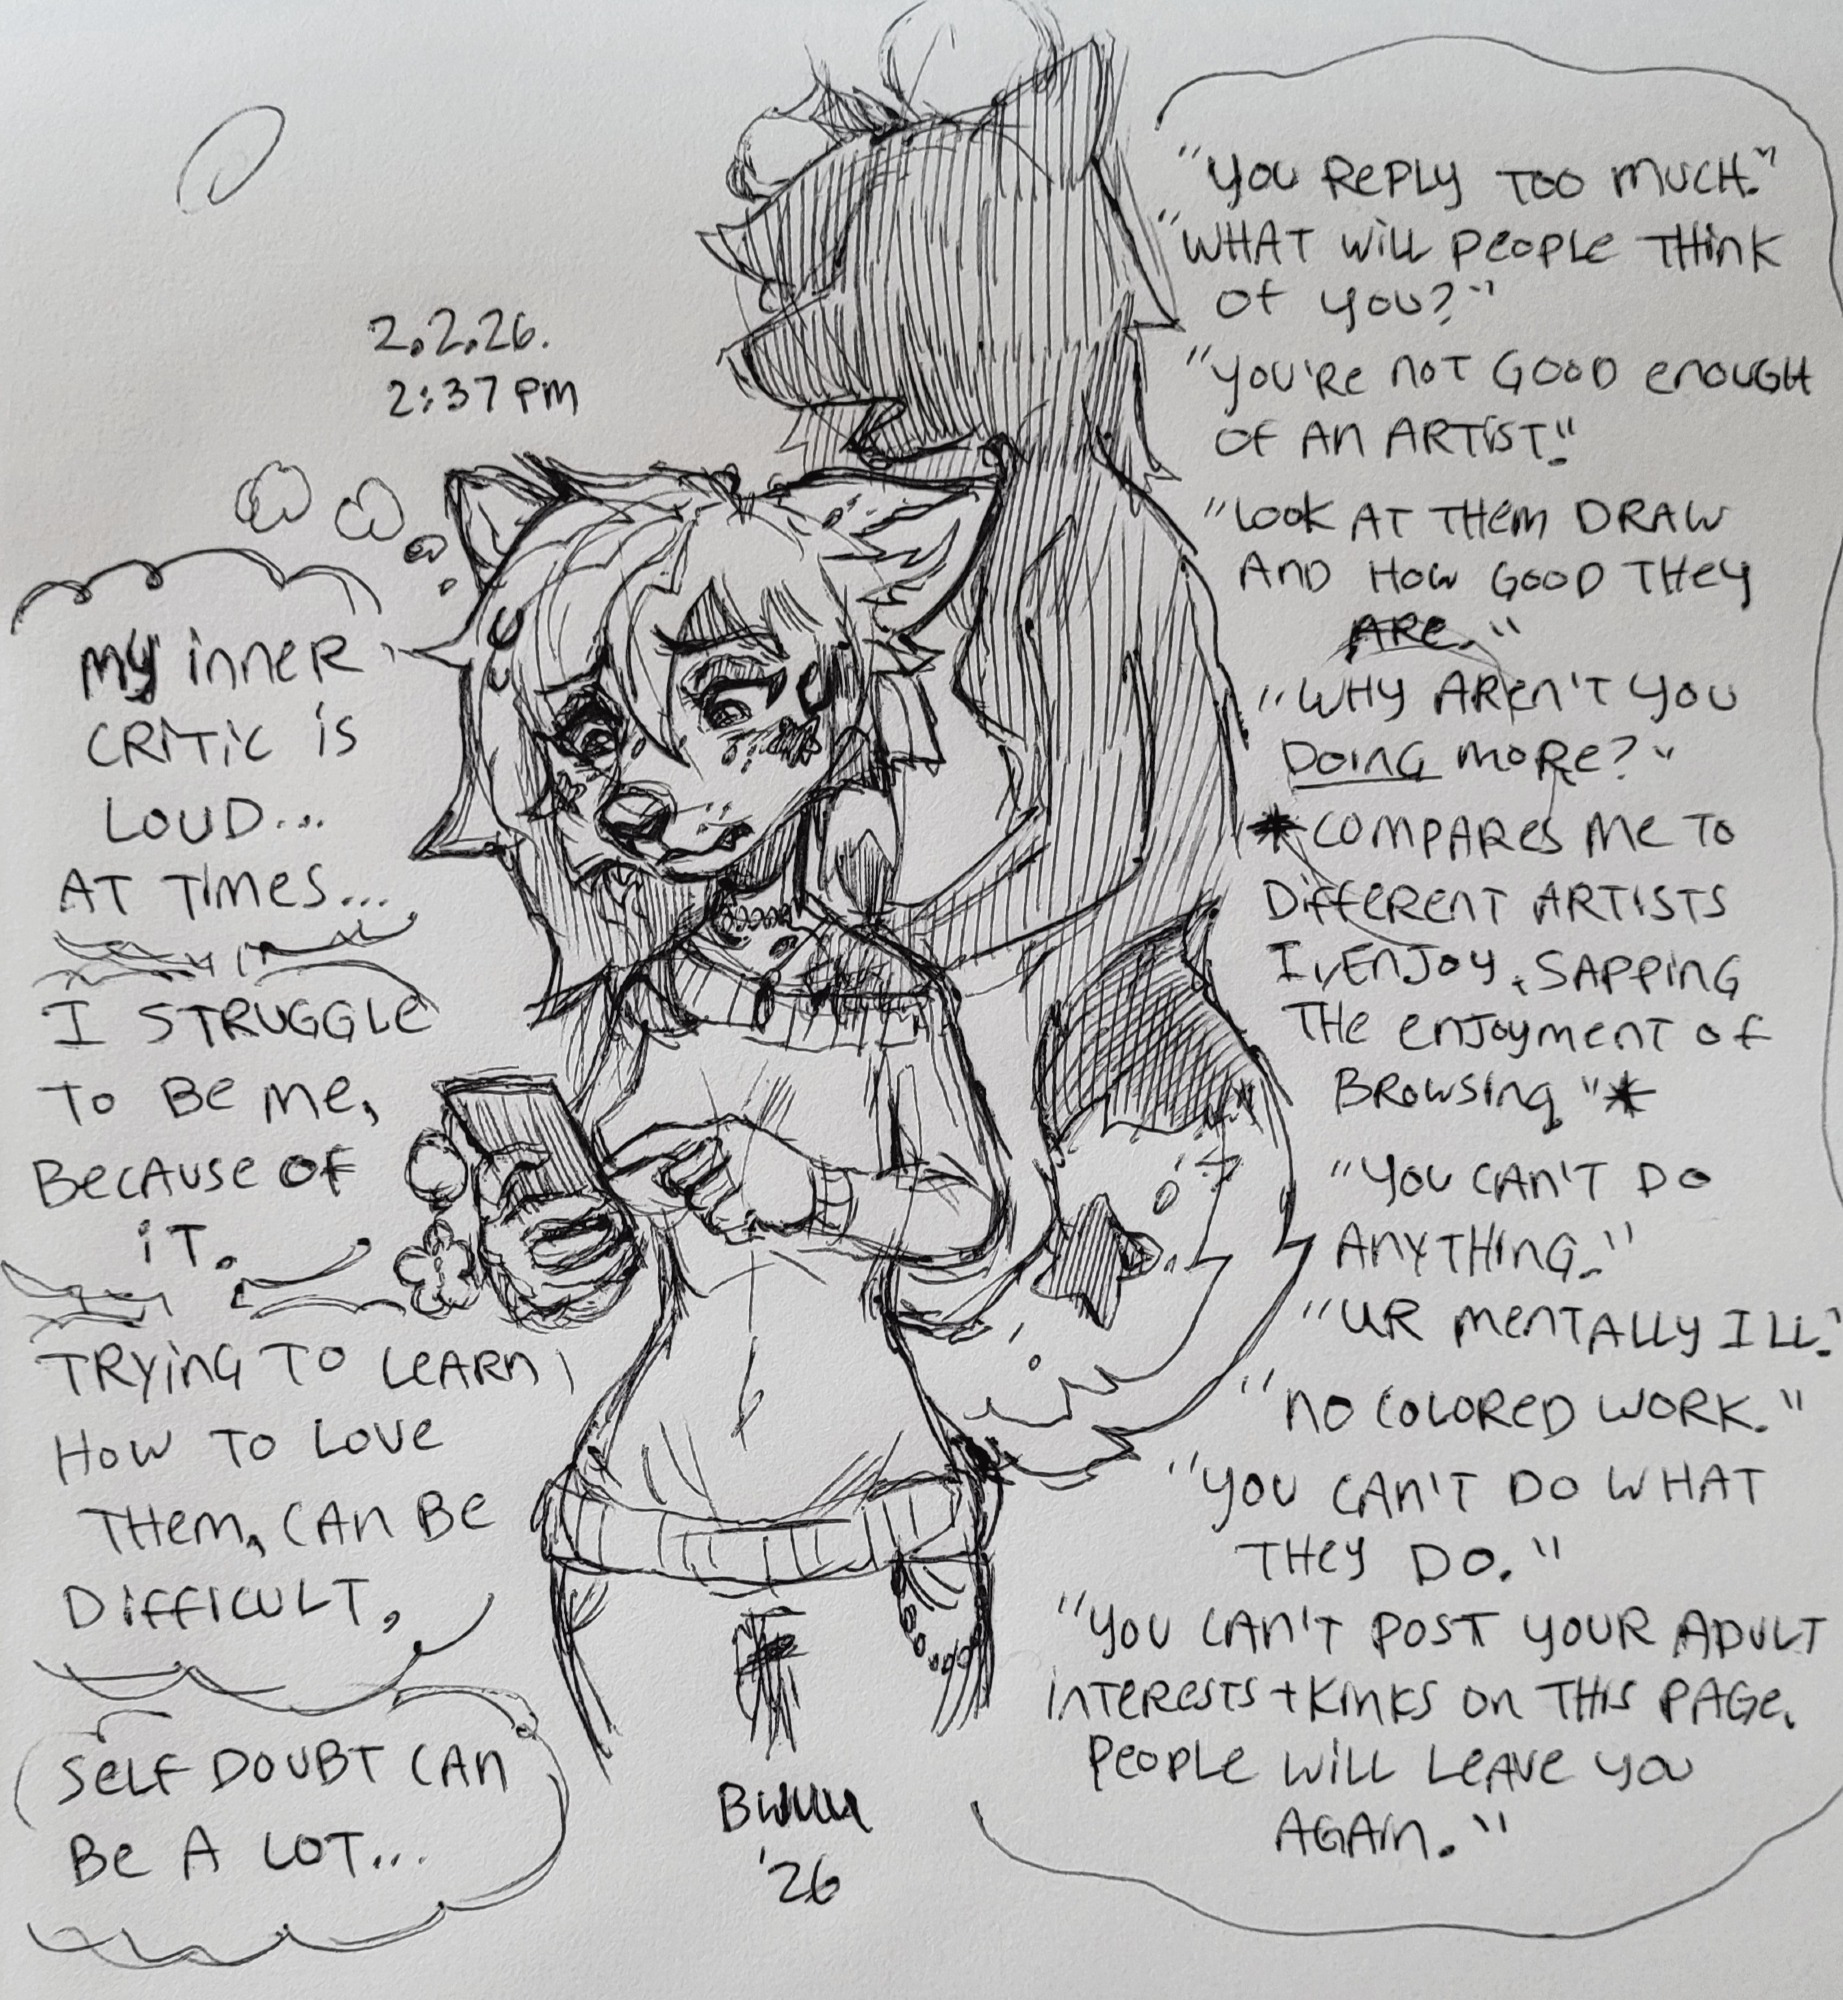 2.2.26.
2:37 PM
MY INNER
CRITIC IS
LOUD...
AT TIMES...
I STRUGGLE
TO BE ME,
BECAUSE OF
IT.
TRYING TO LEARN
HOW TO LOVE
THEM, CAN BE
DIFFICULT,
SELF DOUBT CAN
BE A LOT...
"YOU REPLY TOO MUCH."
"WHAT WILL PEOPLE THINK
OF YOU?"
"YOU'RE NOT GOOD ENOUGH
OF AN ARTIST."
"LOOK AT THEM DRAW
AND HOW GOOD THEY
ARE."
"WHY AREN'T YOU
DOING MORE?"
*COMPARES ME TO
DIFFERENT ARTISTS
I ENJOY, SAPPING
THE ENJOYMENT OF
BROWSING "*
"YOU CAN'T DO
ANYTHING."
"UR MENTALLY ILL."
"NO COLORED WORK."
"YOU CAN'T DO WHAT
THEY DO."
"YOU CAN'T POST YOUR ADULT
INTERESTS + KINKS ON THIS PAGE.
PEOPLE WILL LEAVE YOU
AGAIN."
'26